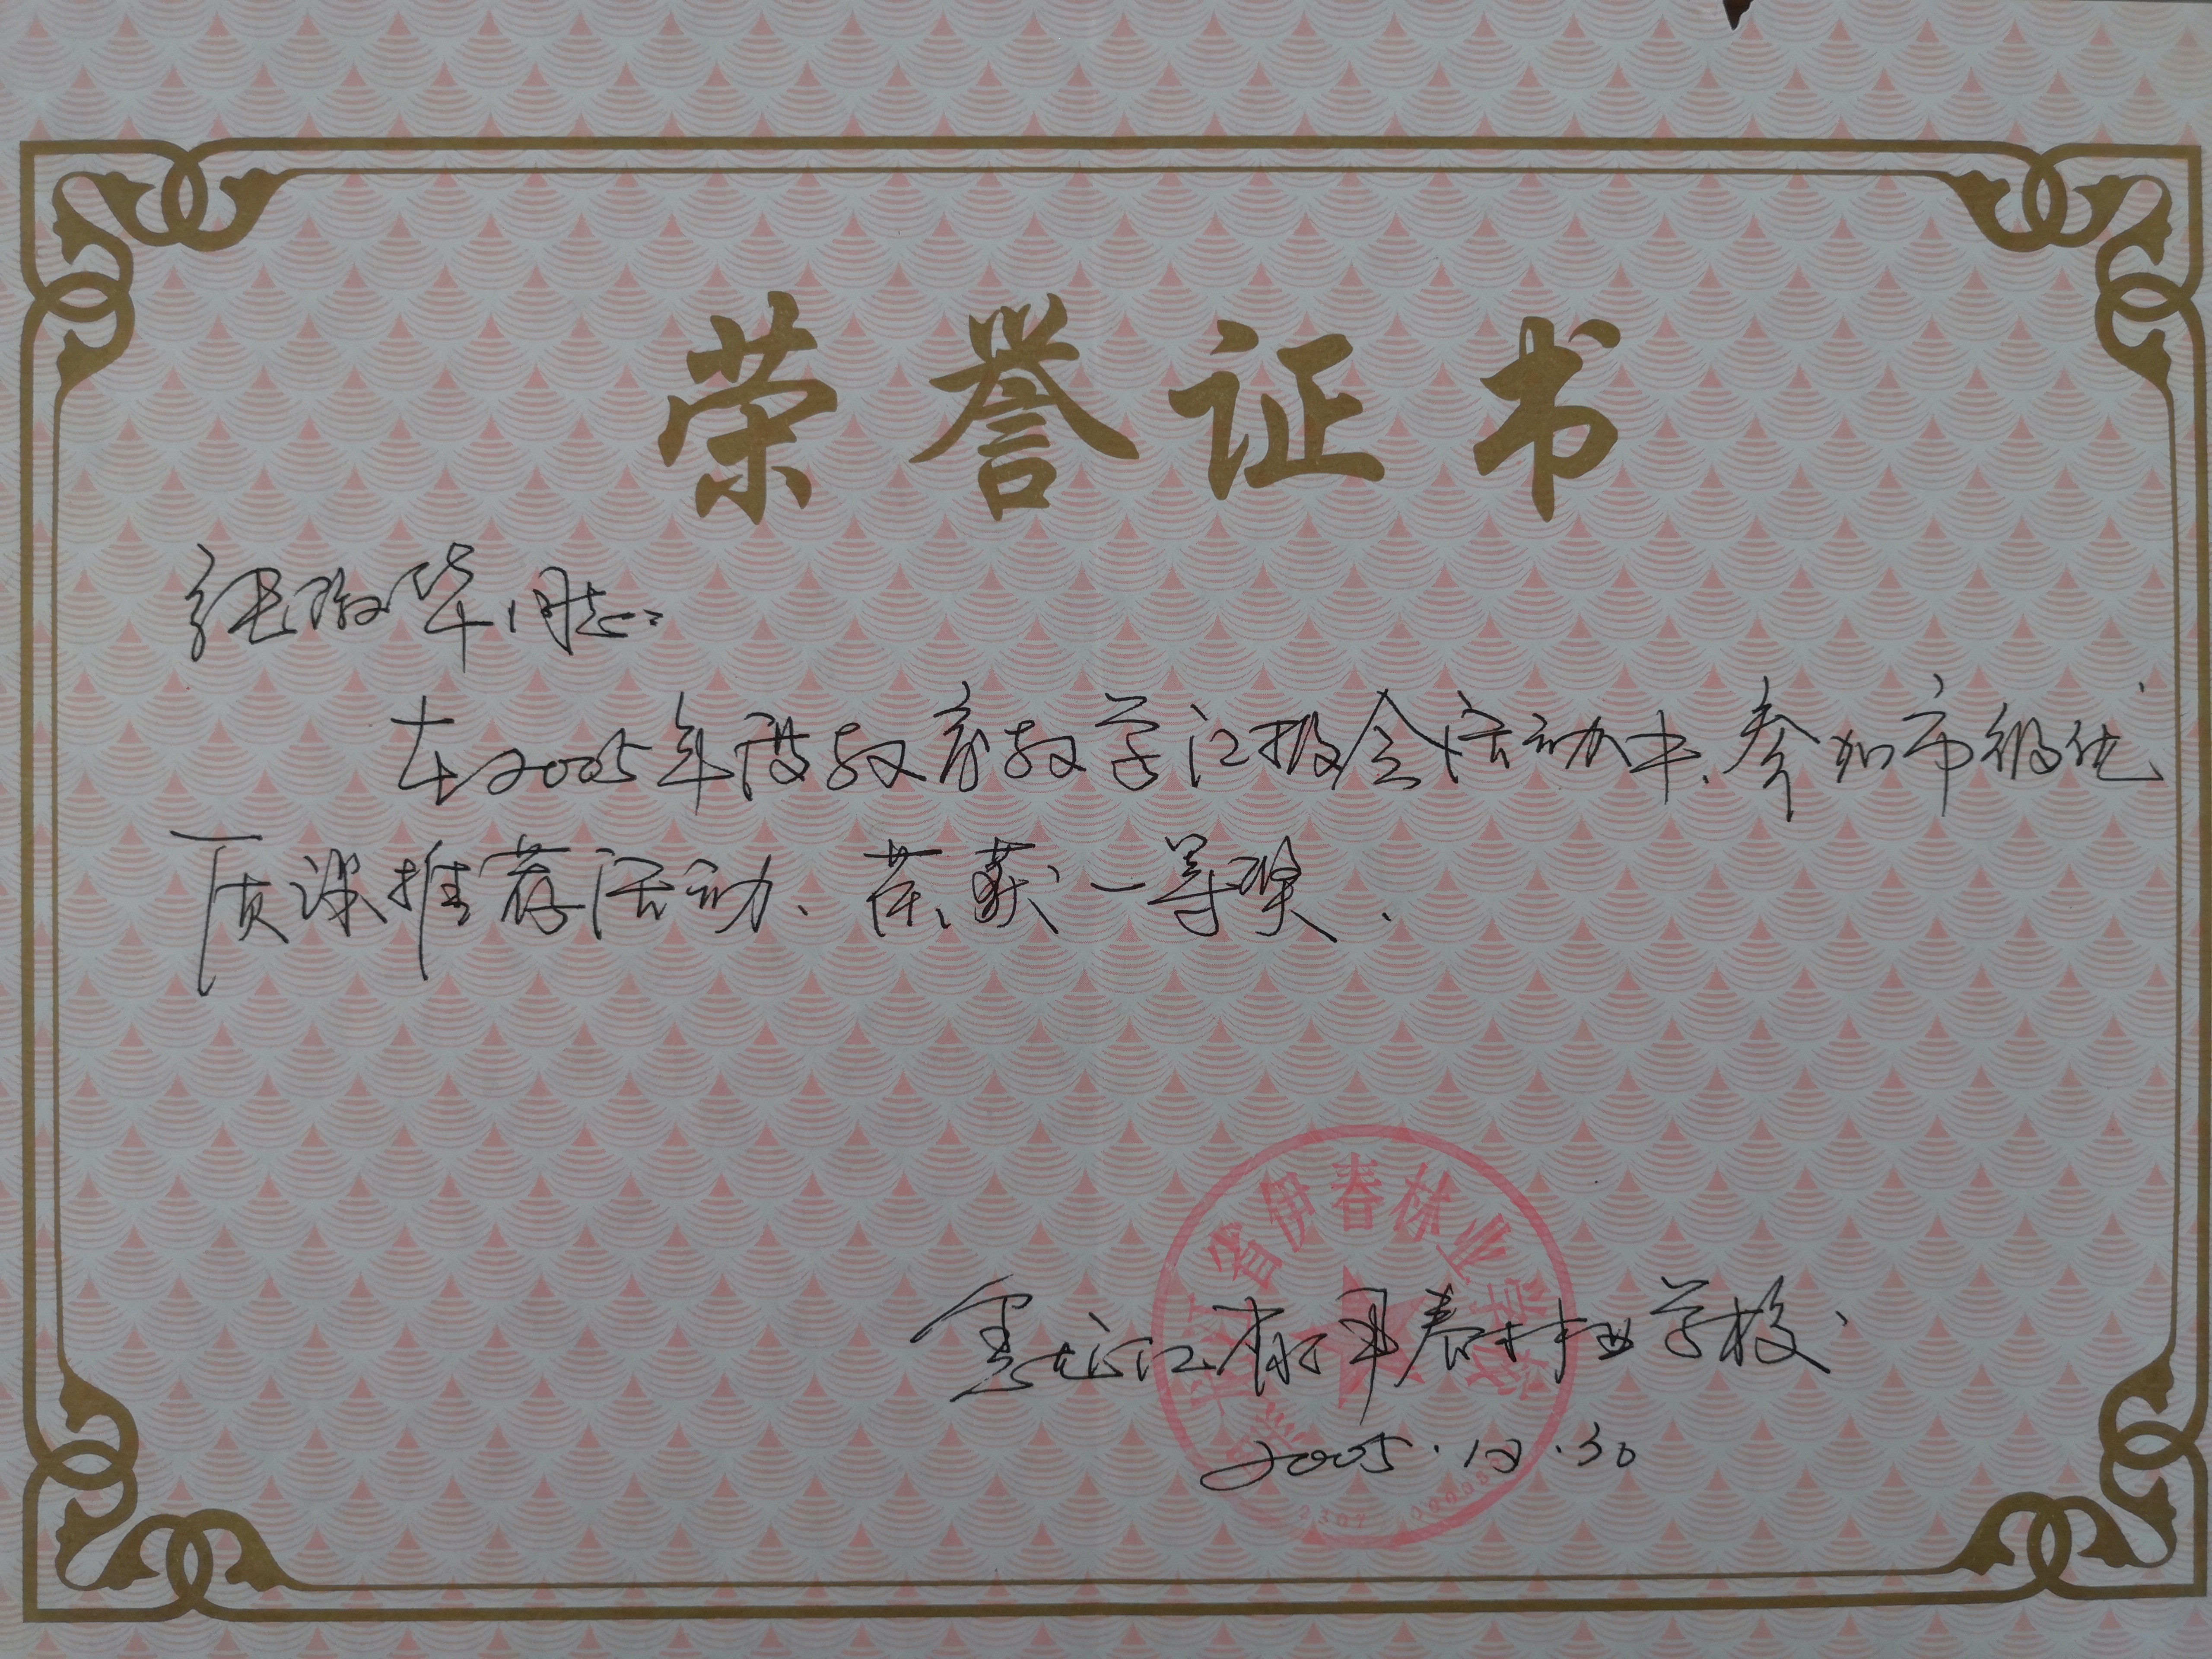 荣誉证书
张华同志：
在2005年度教育教学汇报会活动中、参加市级优
质课推荐活动、荣获一等奖.
黑龙江省伊春林业学校
2005.12.30
江省伊春林业学校
2307